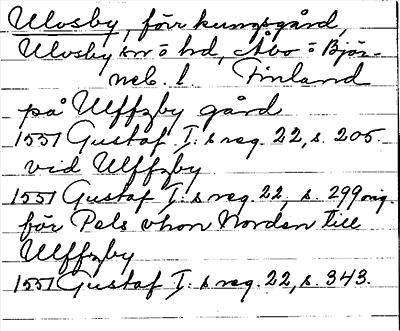 Ulvsby, förr kungsgård,
Ulvsby sn o hd, Åbo o Björ-
neb. l. Finland
på Ulffzby gård
1551 Gustaf I: s reg. 22, s. 205.
vid Ulffzby
1551 Gustaf I: s reg. 22, s. 299 orig.
för Pels vhon Norden till
Ulffzby
1551 Gustaf I: s reg. 22, s. 343.